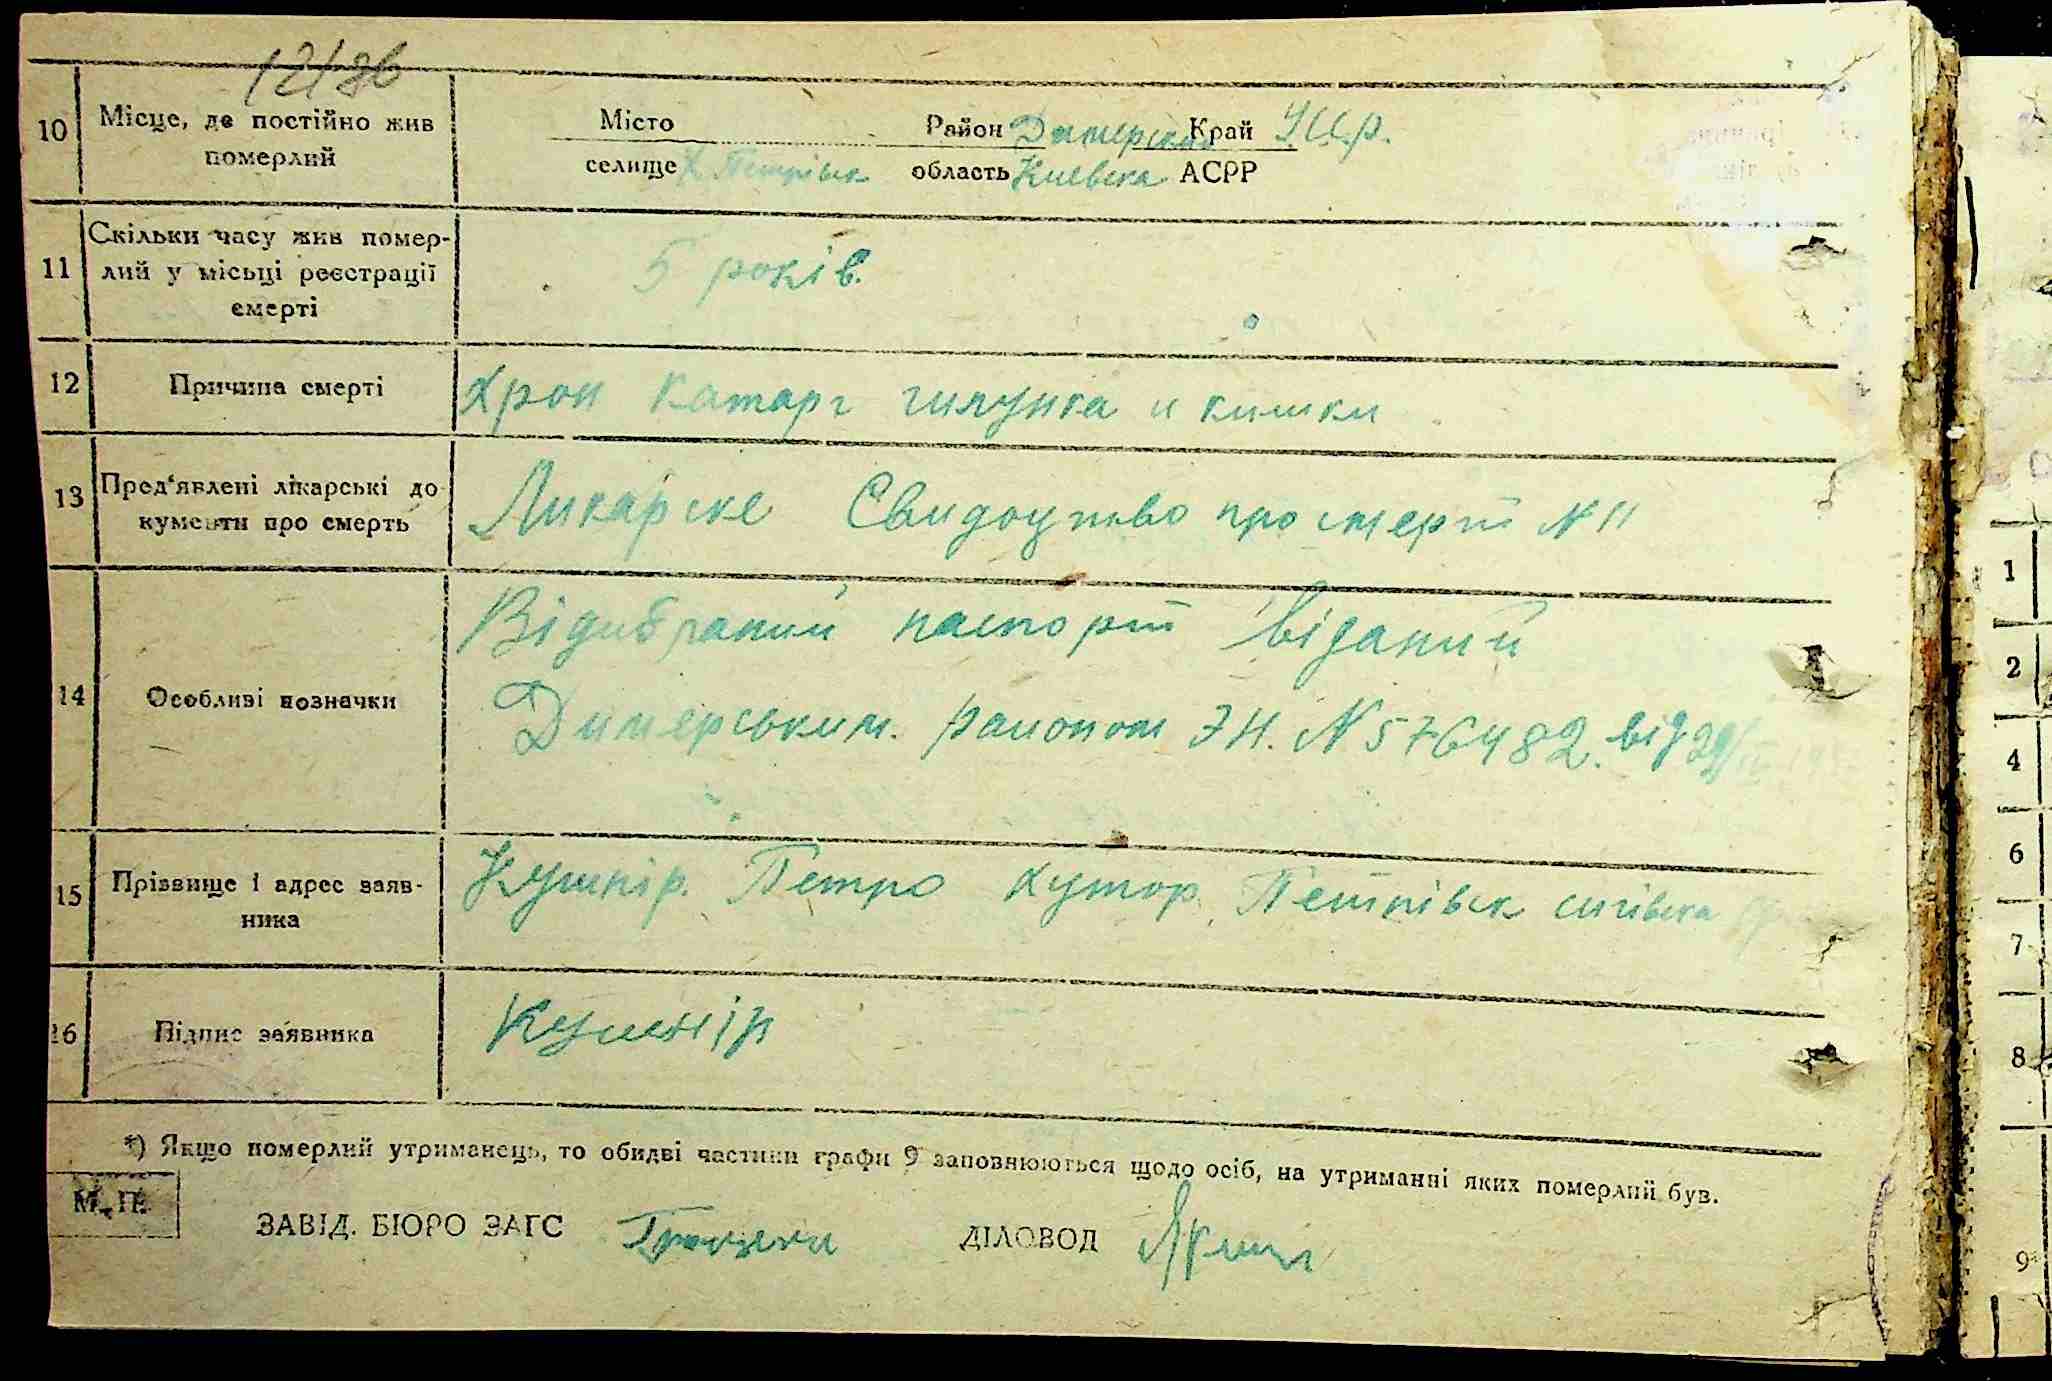 12/36
10 Місце, де постійно жив Місто Район Димерський Край УСРР.
померлий селище х. Петрівск область Киевска АСРР
11 Скільки часу жив помер-
лий у місьці реєстрації 5 років.
смерті
12 Причина смерті Хрон катарг гилунка и кишки
13 Пред'явлені лікарські до-
кументи про смерть Ликарске Свидоцтво про смерт N 11
Відибраний паспорт віданий
14 Особливі позначки Димерським. районом ЭН. N 576482. від 29/
15 Прізвище і адрес заяв- Кушнір. Петро хутор. Петрівск
ника
16 Підпис заявника Кушнір
*) Якщо померлий утриманець, то обидві частини графи 9 заповнюються щодо осіб, на утриманні яких померлий був.
М. П.
ЗАВІД. БЮРО ЗАГС ДІЛОВОД
1
2
4
6
7
8
9